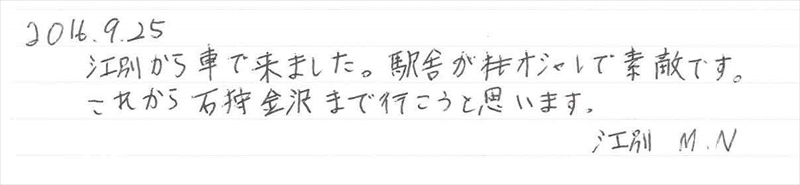 2016.9.25
江別から車で来ました。駅舎がオシャレで素敵です。
これから石狩金沢まで行こうと思います。
江別 M.N